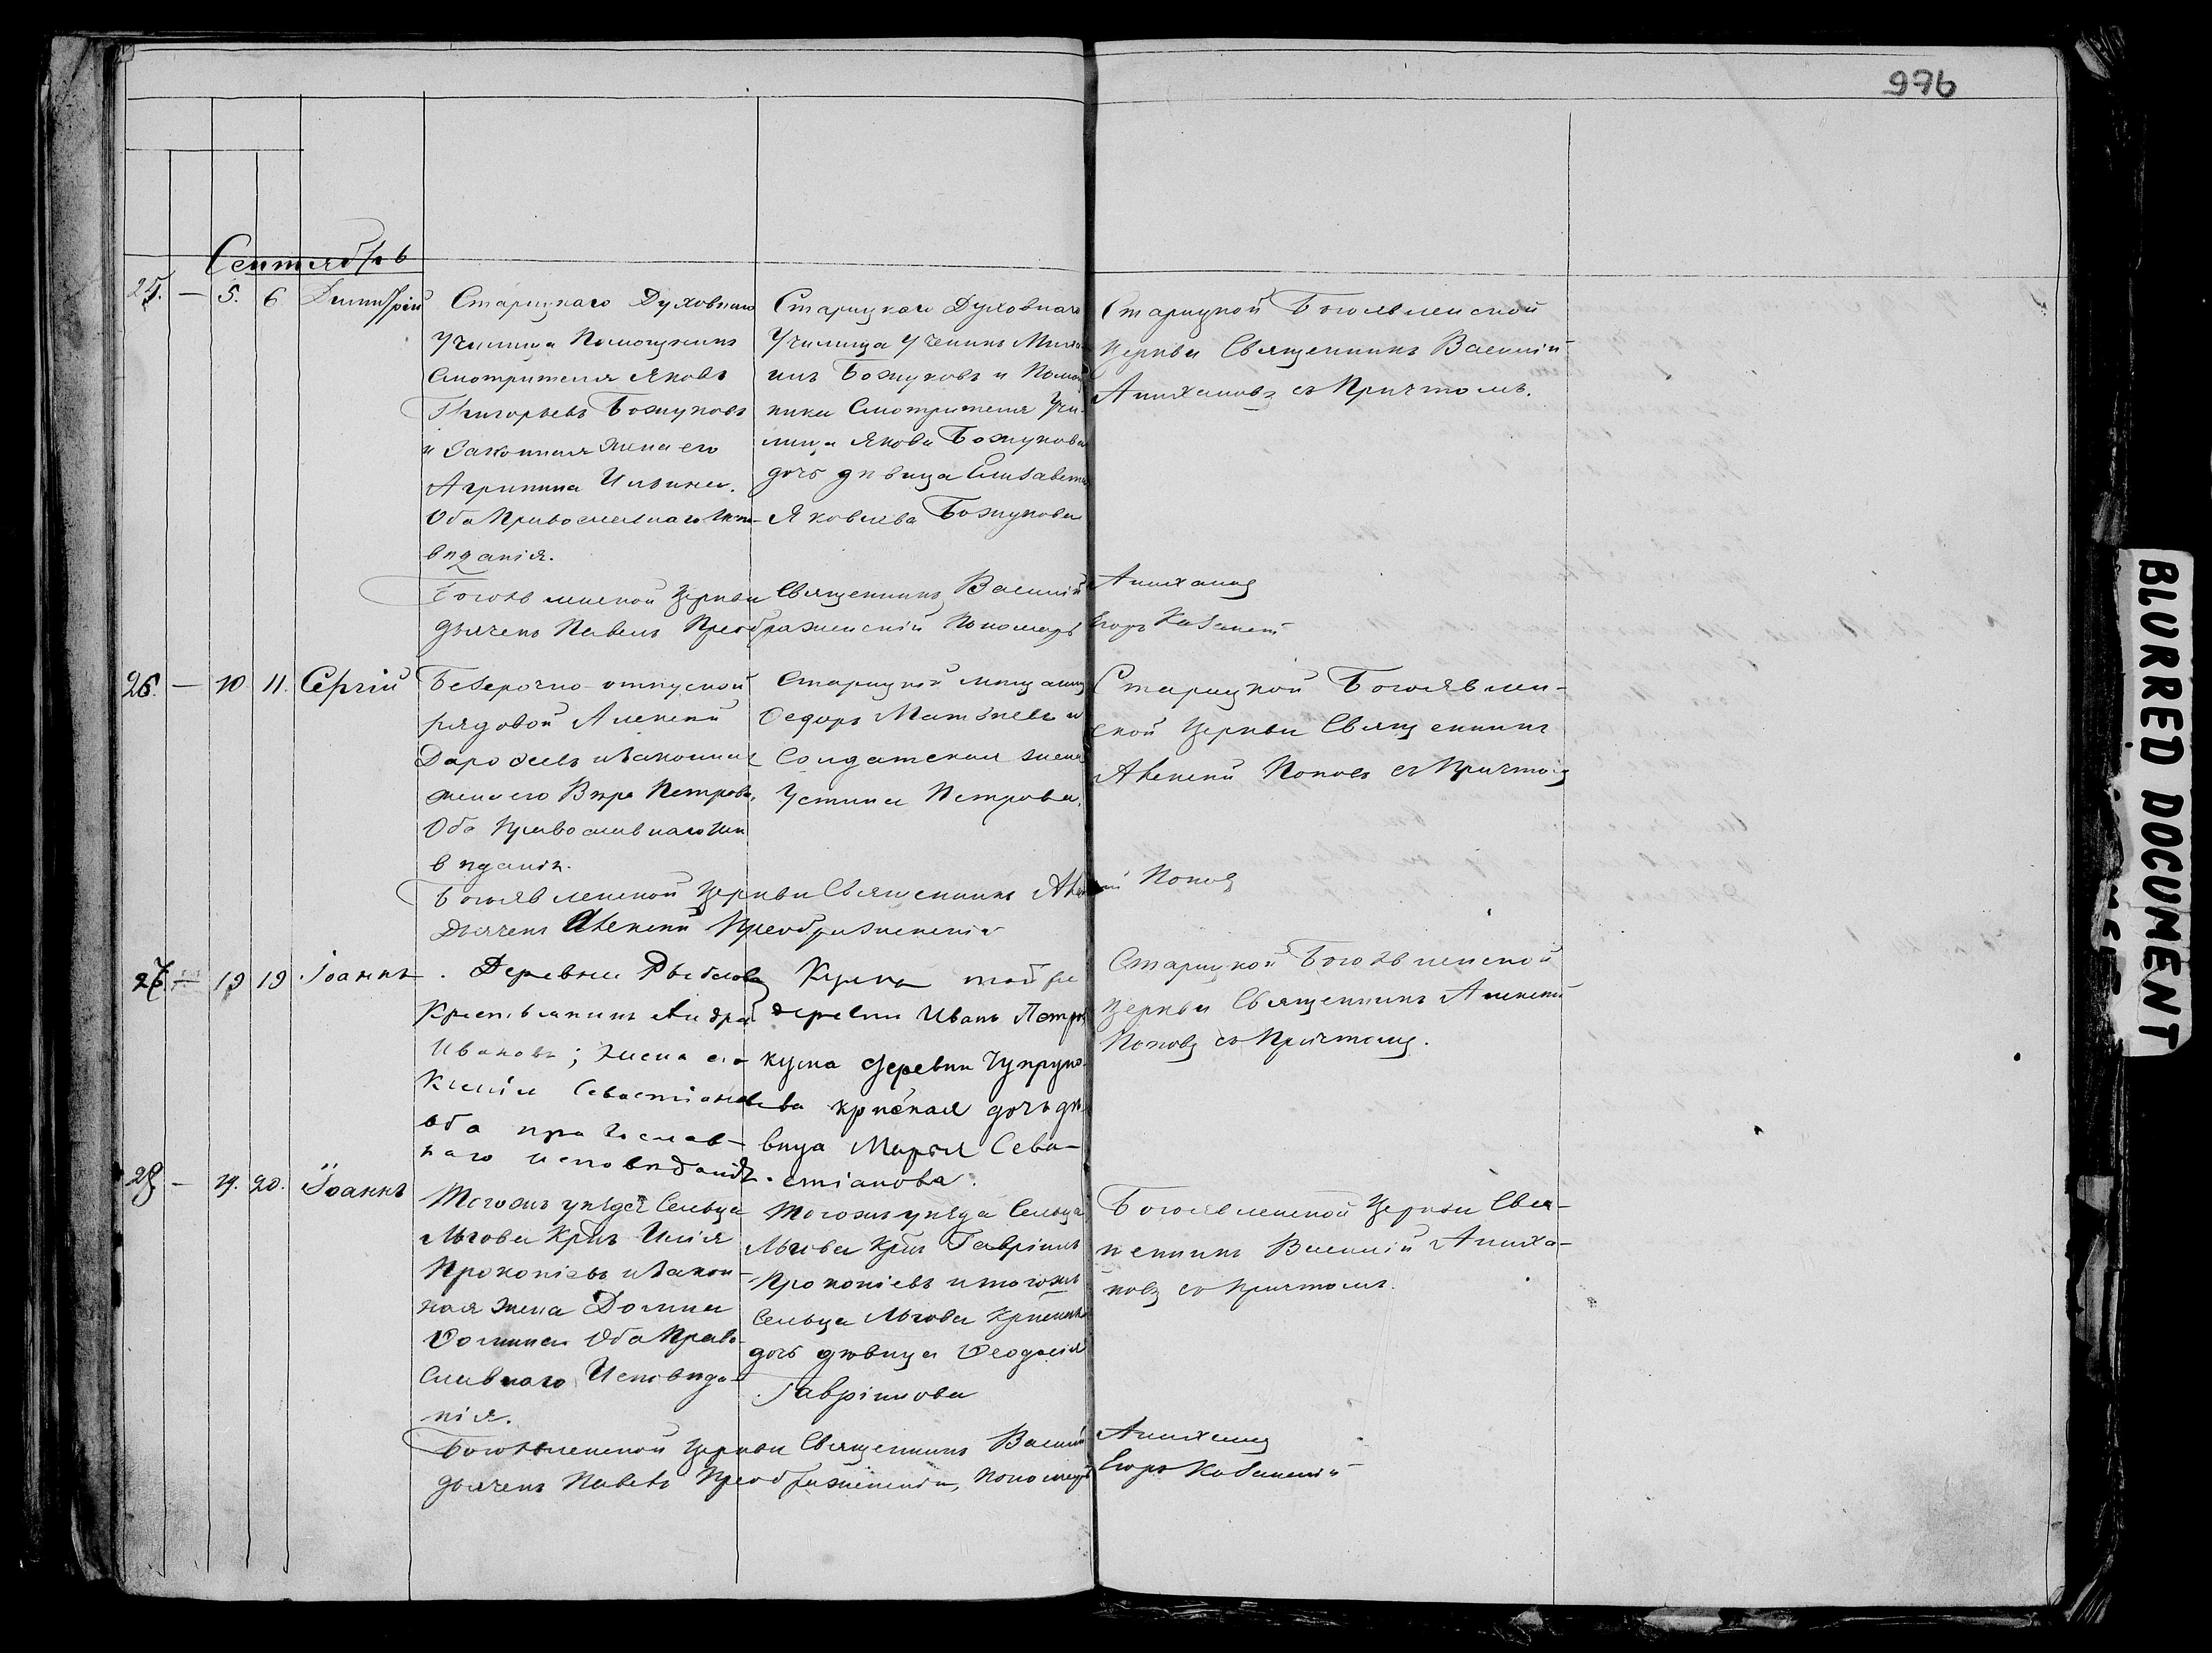 976
Сентябрь
25. — 5. 6 Димитрій
Старицкаго Духовнаго
Училища Помощникъ
Смотрителя Яковъ
Григорьевъ Божуковъ
и законная жена его
Агрипина Ильина.
Оба Православнаго Испо-
вѣданія.
Старицкаго Духовнаго
Училища Ученикъ Миха
илъ Божуковъ и Помощ
ника Смотрителя Учи-
лища Якова Божукова
дочь дѣвица Елисавета
Яковлева Божукова
Старицкой Богоявленской
Церкви Священникъ Василій
Аминханов съ Причтомъ.
Богоявленской Церкви Священникъ Василій
Дьячекъ Павелъ Преображенскій Пономарь Егоръ Казанскій
26. — 10 11. Сергій
Безсрочно-отпускной
рядовой Алексей
Дарофеевъ и законная
жена его Вѣра Петрова,
Оба Православнаго Испо
вѣданія.
Старицкой мещанинъ
Ѳедоръ Матвѣевъ и
Солдатская жена
Устинья Петрова.
Старицкой Богоявлен-
ской Церкви Священникъ
Алексей Поповъ съ Причтомъ
Богоявленской Церкви Священникъ Алексей Поповъ
Дьячекъ Алексей Преображенскій
27 — 19 19 Іоаннъ
Деревни
Крестьянинъ Андрей
Ивановъ; жена его
Ксенія Севастіанова
оба православ-
наго исповѣданія.
Кумъ той же
деревни Иванъ Петровъ
кума деревни Чупруно-
ва крѣская дочь дѣ-
вица Марья Сева-
стіанова.
Старицкой Богоявленской
Церкви Священникъ Алексей
Поповъ съ Причтомъ.
28 — 19. 20. Іоаннъ
Тогожъ уѣзда Сельца
Льгова Кр͠нъ Илія
Прокопіевъ и закон-
ная жена Домна
Ѳомина Оба Право-
славнаго Исповѣда-
нія.
Тогожъ уѣзда Сельца
Льгова Кр͠нъ Гавріилъ
Прокопіевъ и тогожъ
Сельца Льгова Крестьян
дочь дѣвица Ѳеодосія
Гавріилова
Богоявленской Церкви Свя-
щенникъ Василій
съ причтомъ.
Богоявленской Церкви Священникъ Василій
Дьячекъ Павелъ Преображенскій, Пономарь Егоръ Казанскій
BLURRED DOCUMENT